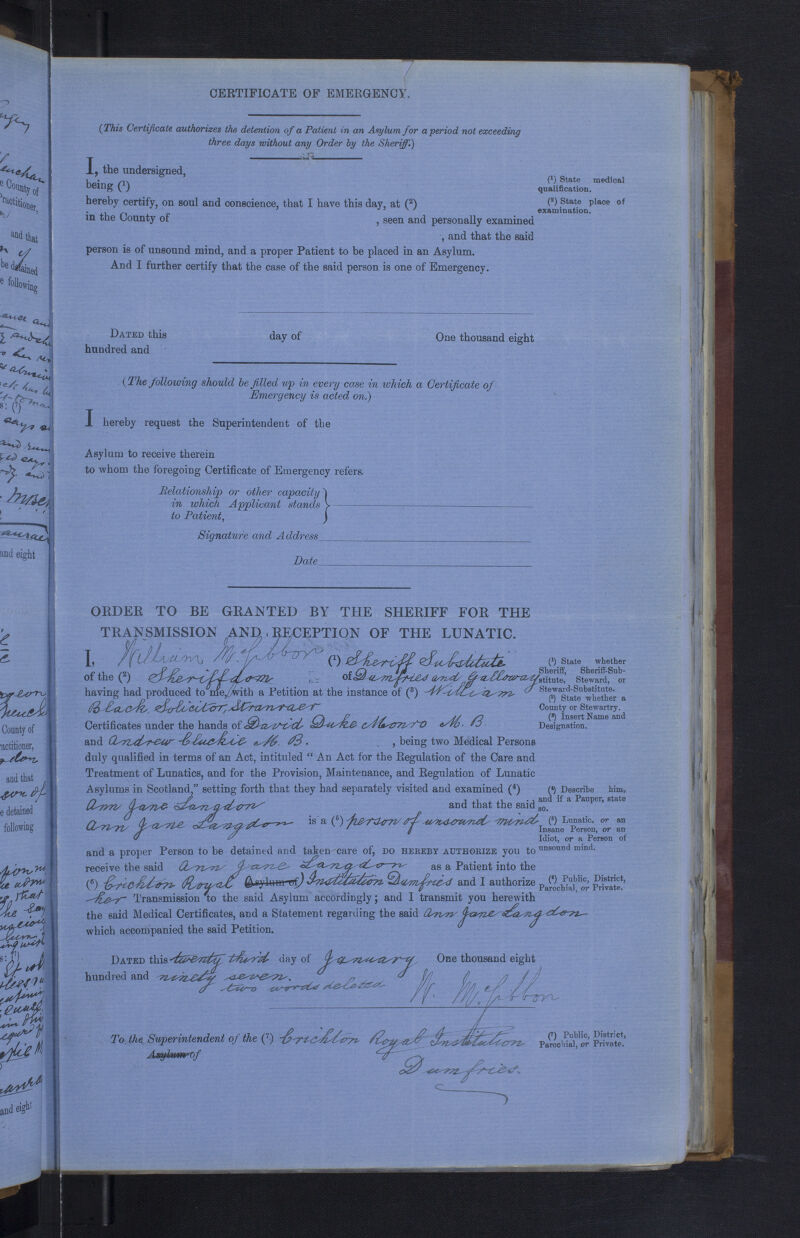 CERTIFICATE OF EMERGENCY.
(This Certificate authorizes the detention of a Patient in an Asylum for a period not exceeding
three days without any Order by the Sheriff.)
I, the undersigned,
being (1)
(1) State medical
qualification.
hereby certify, on soul and conscience, that I have this day, at (2)
(2) State place of
examination.
in the County of , seen and personally examined
, and that the said
person is of unsound mind, and a proper Patient to be placed in an Asylum.
And I further certify that the case of the said person is one of Emergency.
DATED this day of One thousand eight
hundred and
(The following should be filled up in every case in which a Certificate of
Emergency is acted on.)
I hereby request the Superintendent of the
Asylum to receive therein
to whom the foregoing Certificate of Emergency refers.
Relationship or other capacity
in which Applicant stands
to Patient,
Signature and Address
Date
ORDER TO BE GRANTED BY THE SHERIFF FOR THE
TRANSMISSION AND RECEPTION OF THE LUNATIC.
I, William McGibbon (1) Sheriff Substitute
of the (2) Sheriffdom of Dumfries and Galloway
having had produced to me, with a Petition at the instance of (3) William
Black, Solicitor, Stranraer
(1) State whether
Sheriff, Sheriff-Sub-
stitute, Steward, or
Steward-Substitute.
(2) State whether a
County or Stewartry.
(3) Insert Name and
Designation.
Certificates under the hands of David Duke Monro M.B.
and Andrew Cluckie M.B. , being two Medical Persons
duly qualified in terms of an Act, intituled "An Act for the Regulation of the Care and
Treatment of Lunatics, and for the Provision, Maintenance, and Regulation of Lunatic
Asylums in Scotland," setting forth that they had separately visited and examined (4)
Ann Jane Langdon and that the said
(4) Describe him,
and if a Pauper, state
so.
Ann Jane Langdon is a (5) person of unsound mind
(5) Lunatic, or an
Insane Person, or an
Idiot, or a Person of
unsound mind.
and a proper Person to be detained and taken care of, DO HEREBY AUTHORIZE you to
receive the said Ann Jane Langdon as a Patient into the
(6) Crichton Royal Asylum of Institution Dumfries and I authorize
(6) Public, District,
Parochial, or Private.
her Transmission to the said Asylum accordingly; and I transmit you herewith
the said Medical Certificates, and a Statement regarding the said Ann Jane Langdon
which accompanied the said Petition.
DATED this twenty third day of January One thousand eight
hundred and ninety seven.
two words deleted
W. McGibbon
To the Superintendent of the (7) Crichton Royal Institution
Asylum of
Dumfries.
(7) Public, District,
Parochial, or Private.
County of
Practitioner,
and that
be detained
following
and eight
County of
and that
detained
following
and eight